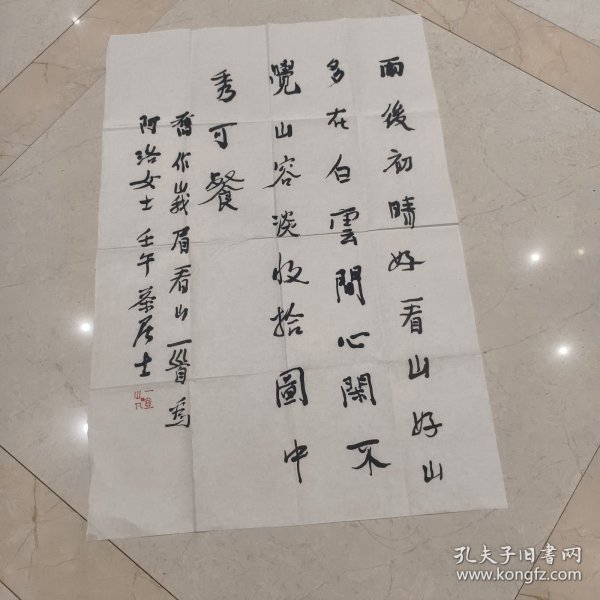 雨後初晴好看山好山
多在白雲間心閑不
覺山容淡收拾圖中
秀可餐
舊作峨眉看山一首為
阿洛女士 壬午 茶居士
孔夫子旧书网
www.kongfz.com